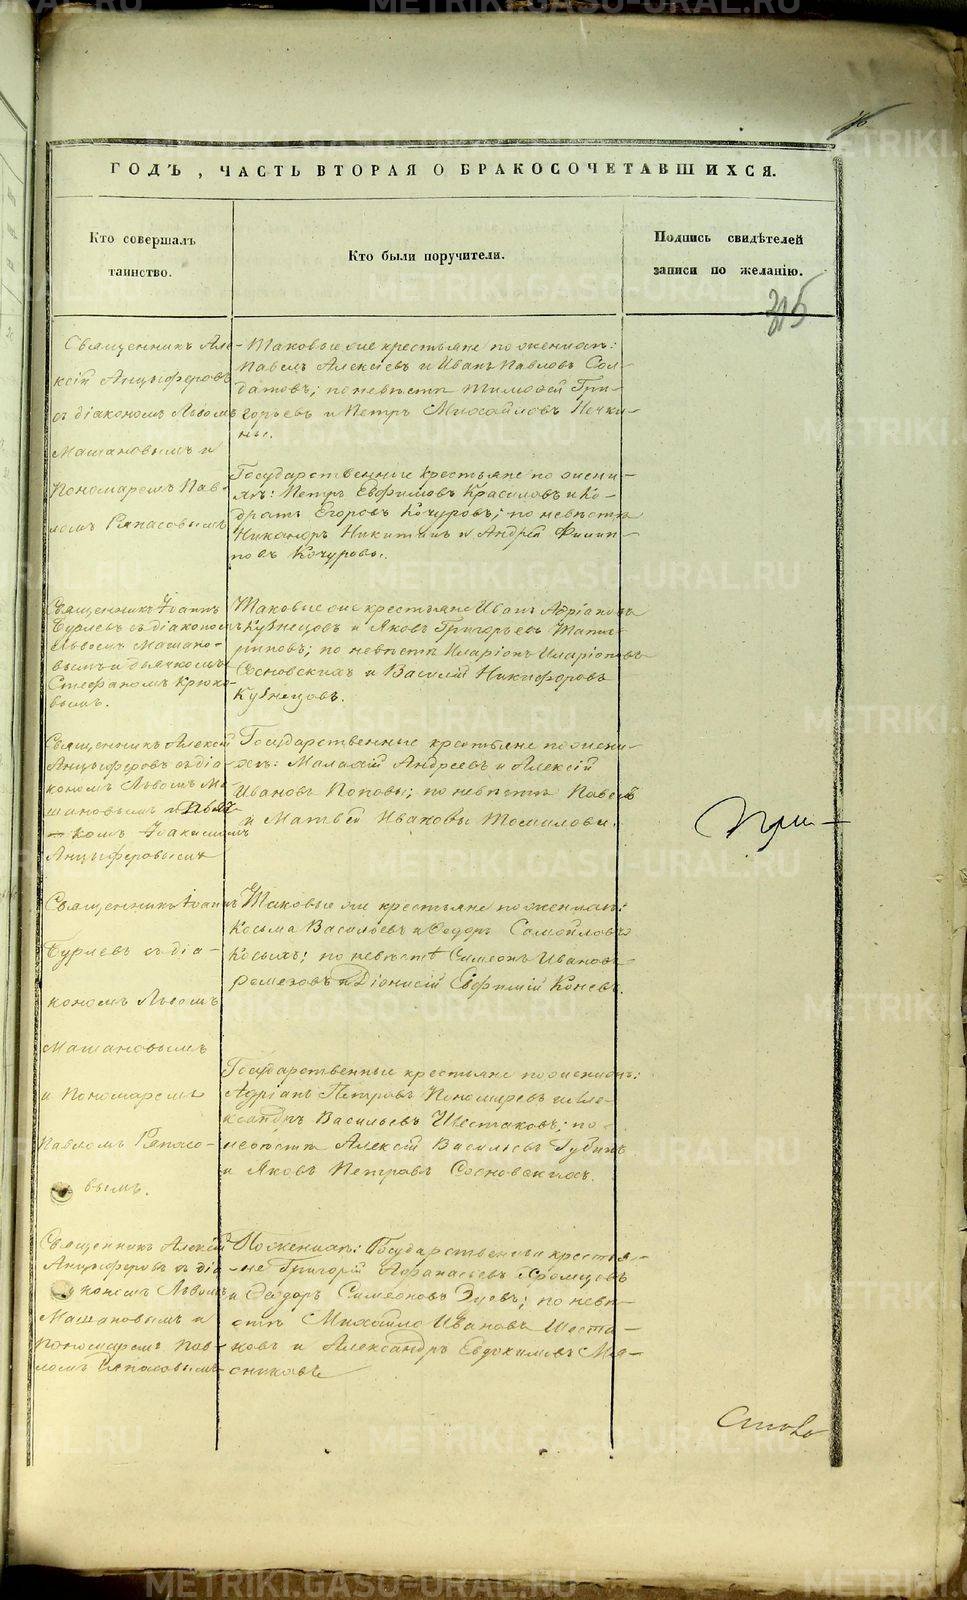 ГОДЪ , ЧАСТЬ ВТОРАЯ О БРАКОСОЧЕТАВШИХСЯ.
Кто совершалъ
таинство.
Кто были поручители.
Подпись свидѣтелей
записи по желанію.
315
Священникъ Але-
ксій Анцыферовъ
съ діакономъ Львомъ
Машановымъ и
Пономаремъ Пав-
ломъ Ряпасовымъ
Таковые же крестьяне по женихѣ:
Павелъ Алексѣевъ и Иванъ Павловъ Сол-
датовъ; по невѣстѣ Тимоѳей Гри-
горьевъ и Петръ Михайловъ Нечки-
ны.
Государственные крестьяне по жени-
хѣ: Петръ Евфимовъ Красиловъ и Ко-
дратъ Егоровъ Кочуровъ; по невѣстѣ
Никаноръ Никитинъ и Андрей Филип-
повъ Кочуровы.
Священникъ Іоаннъ
Бурлевъ съ діакономъ
Львомъ Машано-
вымъ и дьячкомъ
Стефаномъ Крюко-
вымъ.
Таковые же крестьяне Иванъ Адріановъ
Кузнецовъ и Яковъ Григорьевъ
по невѣстѣ Иларіонъ Иларіоновъ
Сосновскихъ и Василій Никифоровъ
Кузнецовъ.
Священникъ Алексій
Анцыферовъ съ діа-
кономъ Львомъ Ма-
шановымъ и Дьяч-
комъ Іоакимомъ
Анцыферовымъ
Государственные крестьяне по жени-
хѣ: Малахій Андреевъ и Алексій
Ивановъ Поповы; по невѣстѣ Павелъ
и Матвѣй Ивановы Томиловы.
При-
Священникъ Іоаннъ
Бурлевъ съ діа-
кономъ Львомъ
Машановымъ
и Пономаремъ
Павломъ Ряпасо-
вымъ.
Таковые же крестьяне по женихѣ:
Косьма Васильевъ и Ѳедоръ Самойловъ
Косыхъ; по невѣстѣ Симеонъ Ивановъ
и Діонисій Евфимій Коневъ.
Государственные крестьяне по женихѣ:
Адріанъ Петровъ Пономаревъ и Але-
ксандръ Васильевъ Шестаковъ; по
невѣстѣ Алексій Васильевъ Губинъ
и Яковъ Петровъ Сосновскихъ.
Священникъ Алексій
Анцыферовъ съ діа-
кономъ Львомъ
Машановымъ и
Пономаремъ Пав-
ломъ Ряпасовымъ
По женихѣ: Государственные крестья-
не Григорій Афанасьевъ Храмцовъ
и Ѳедоръ Симеоновъ Зуевъ; по невѣ-
стѣ Михайло Ивановъ Шеста-
ковъ и Александръ Евдокимовъ Мя-
сниковъ
METRIKI.GASO-URAL.RU